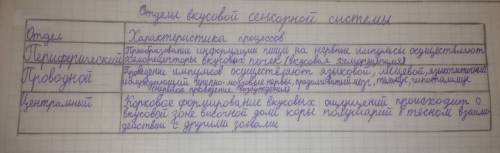 Отделы вкусовой сенсорной системы
Отдел Характеристика процессов
Периферический Преобразование информации пищи на нервные импульсы осуществляют
хеморецепторы вкусовых почек (вкусовая
Проводной Проведение импульсов осуществляют языковой, лицевой, языкоглоточный
черепно-мозговые нервы, продолговатый мозг, таламус, гипоталамус
проведение возбуждения
Центральный Корковое формирование вкусовых ощущений происходит в
вкусовой зоне височной доли коры полушарий в тесном взаимо
действии с другими зонами